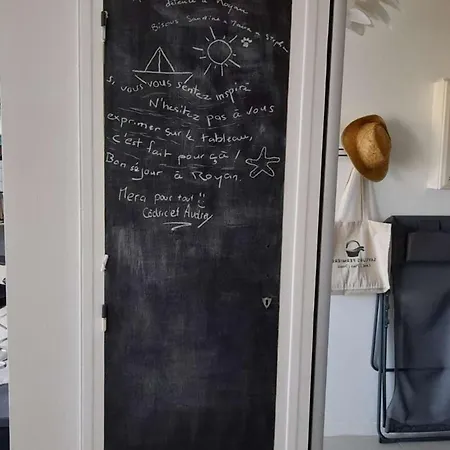 détente à Royan
Bisous Sandrine
s, vous vous sentez inspiré
N'hesitez pas à vous
exprimer sur le tableau,
c'est fait pour ça !
Bon séjour à Royan.
Merci pour tout
Cédric et Audrey